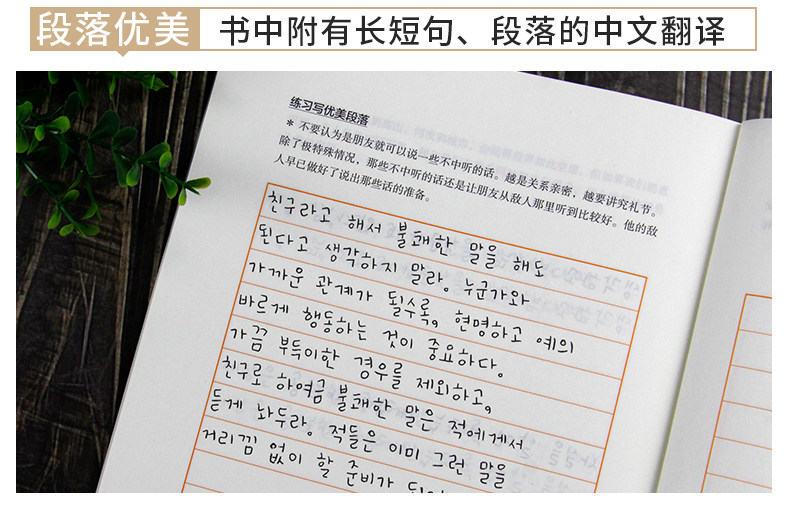 段落优美
书中附有长短句、段落的中文翻译
练习写优美段落
* 不要认为是朋友就可以说一些不中听的话。越是关系亲密，越要讲究礼节。
除了极特殊情况，那些不中听的话还是让朋友从敌人那里听到比较好。他的敌
人早已做好了说出那些话的准备。
친구라고 해서 불쾌한 말을 해도
된다고 생각하지 말라. 누군가와
가까운 관계가 될수록, 현명하고 예의
바르게 행동하는 것이 중요하다.
가끔 부득이한 경우를 제외하고,
친구로 하여금 불쾌한 말은 적에게서
듣게 놔두라. 적들은 이미 그런 말을
거리낌 없이 할 준비가